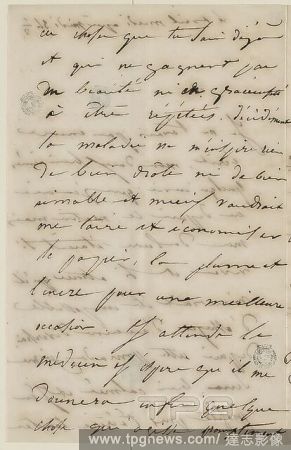 ces choses que tu sais déjà
et qui ne gagnent pas
en beauté ni en
à être répétées. Décidément
la maladie ne m'inspire rien
de bien drôle ni de bien
aimable et mieux vaudrait
me taire et économiser
le papier, la plume et
l'encre pour une meilleure
occasion. J'attends le
médecin et j'espère qu'il me
donnera enfin quelque
chose qui
TPG
www.tpgnews.com/ 達志影像